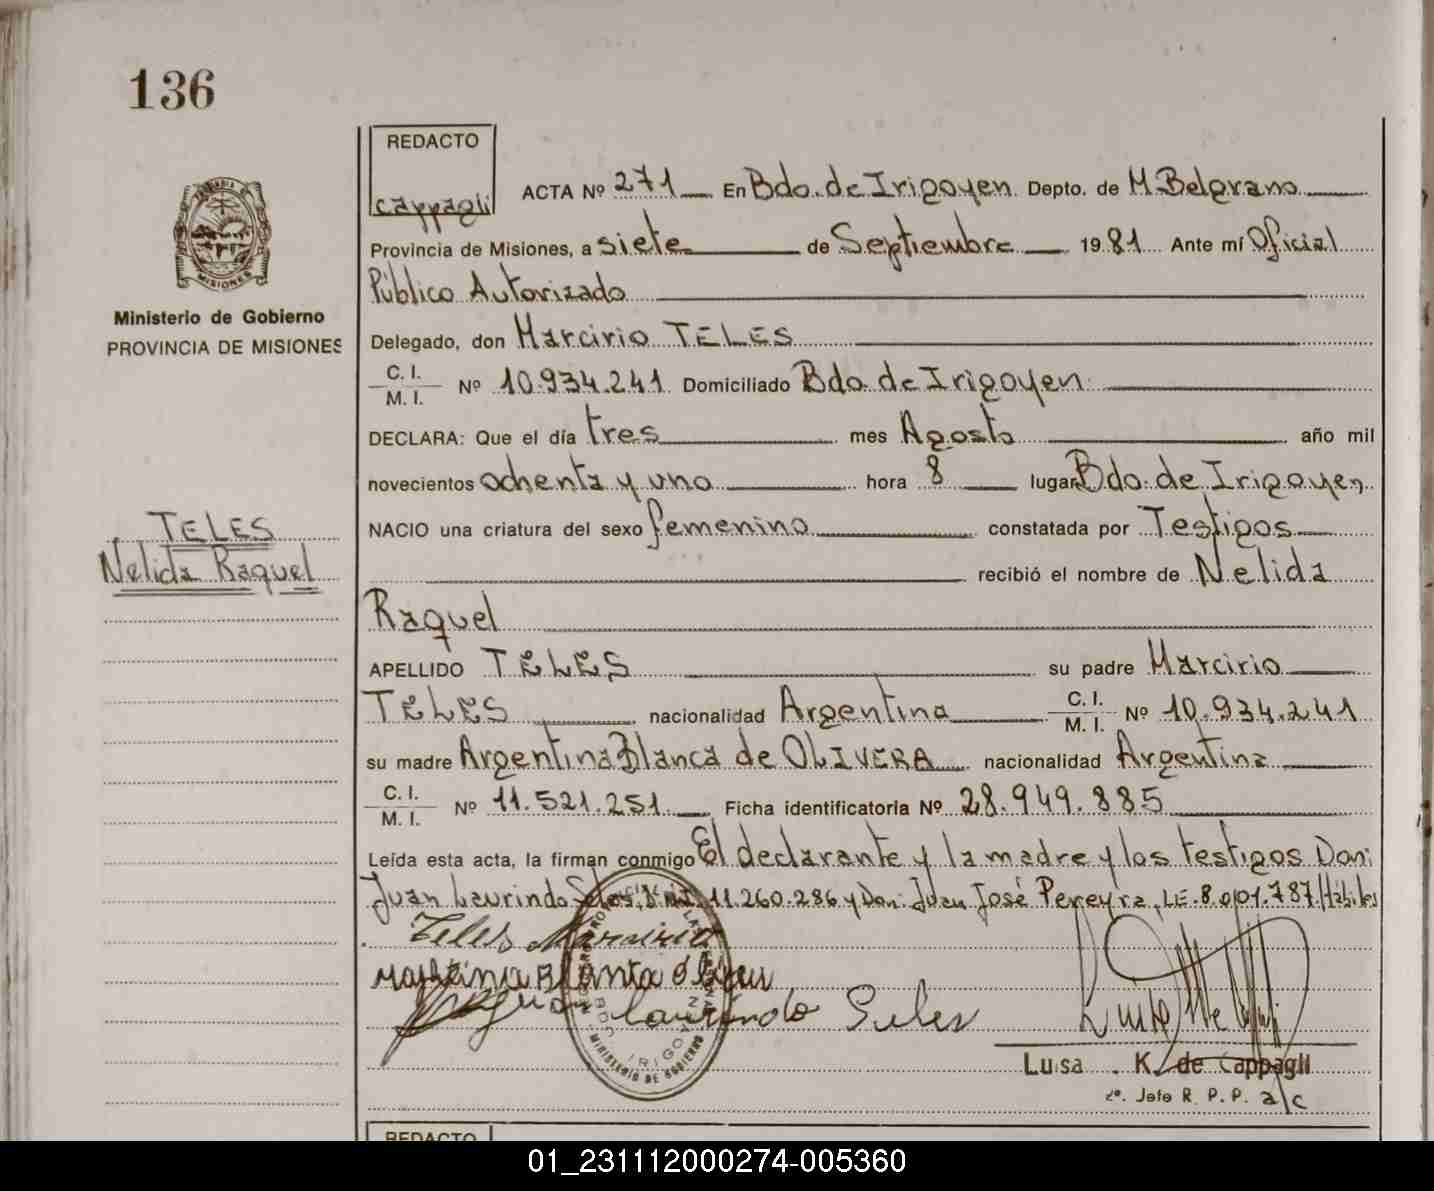 136
REDACTO
cappagli
ACTA Nº 271 En Bdo. de Irigoyen Depto. de M. Belgrano
Provincia de Misiones, a siete de Septiembre 1981 Ante mí Oficial
Público Autorizado
Delegado, don Marcirio TELES
C. I.
M. I. Nº 10.934.241 Domiciliado Bdo. de Irigoyen
DECLARA: Que el día tres mes Agosto año mil
novecientos ochenta y uno hora 8 lugar Bdo. de Irigoyen
NACIO una criatura del sexo femenino constatada por Testigos
recibió el nombre de Nelida
Raquel
APELLIDO TELES su padre Marcirio
TELES nacionalidad Argentina C. I.
M. I. Nº 10.934.241
su madre Argentina Blanca de OLIVERA nacionalidad Argentina
C. I.
M. I. Nº 11.521.251 Ficha identificatoria Nº 28.949.885
Leída esta acta, la firman conmigo El declarante y la madre y los testigos Don:
Juan Laurindo 11.260.286 y Don: Juan José Pereyra, LE. 8.001.787/Hábiles
Teles Marcirio
Laurindo
Luisa K. de Cappagli
2º. Jefe R. P. P. a/c
PROVINCIA DE MISIONES
Ministerio de Gobierno
PROVINCIA DE MISIONES
TELES
Nelida Raquel
MINISTERIO DE GOBIERNO
REDACTO
01_231112000274-005360